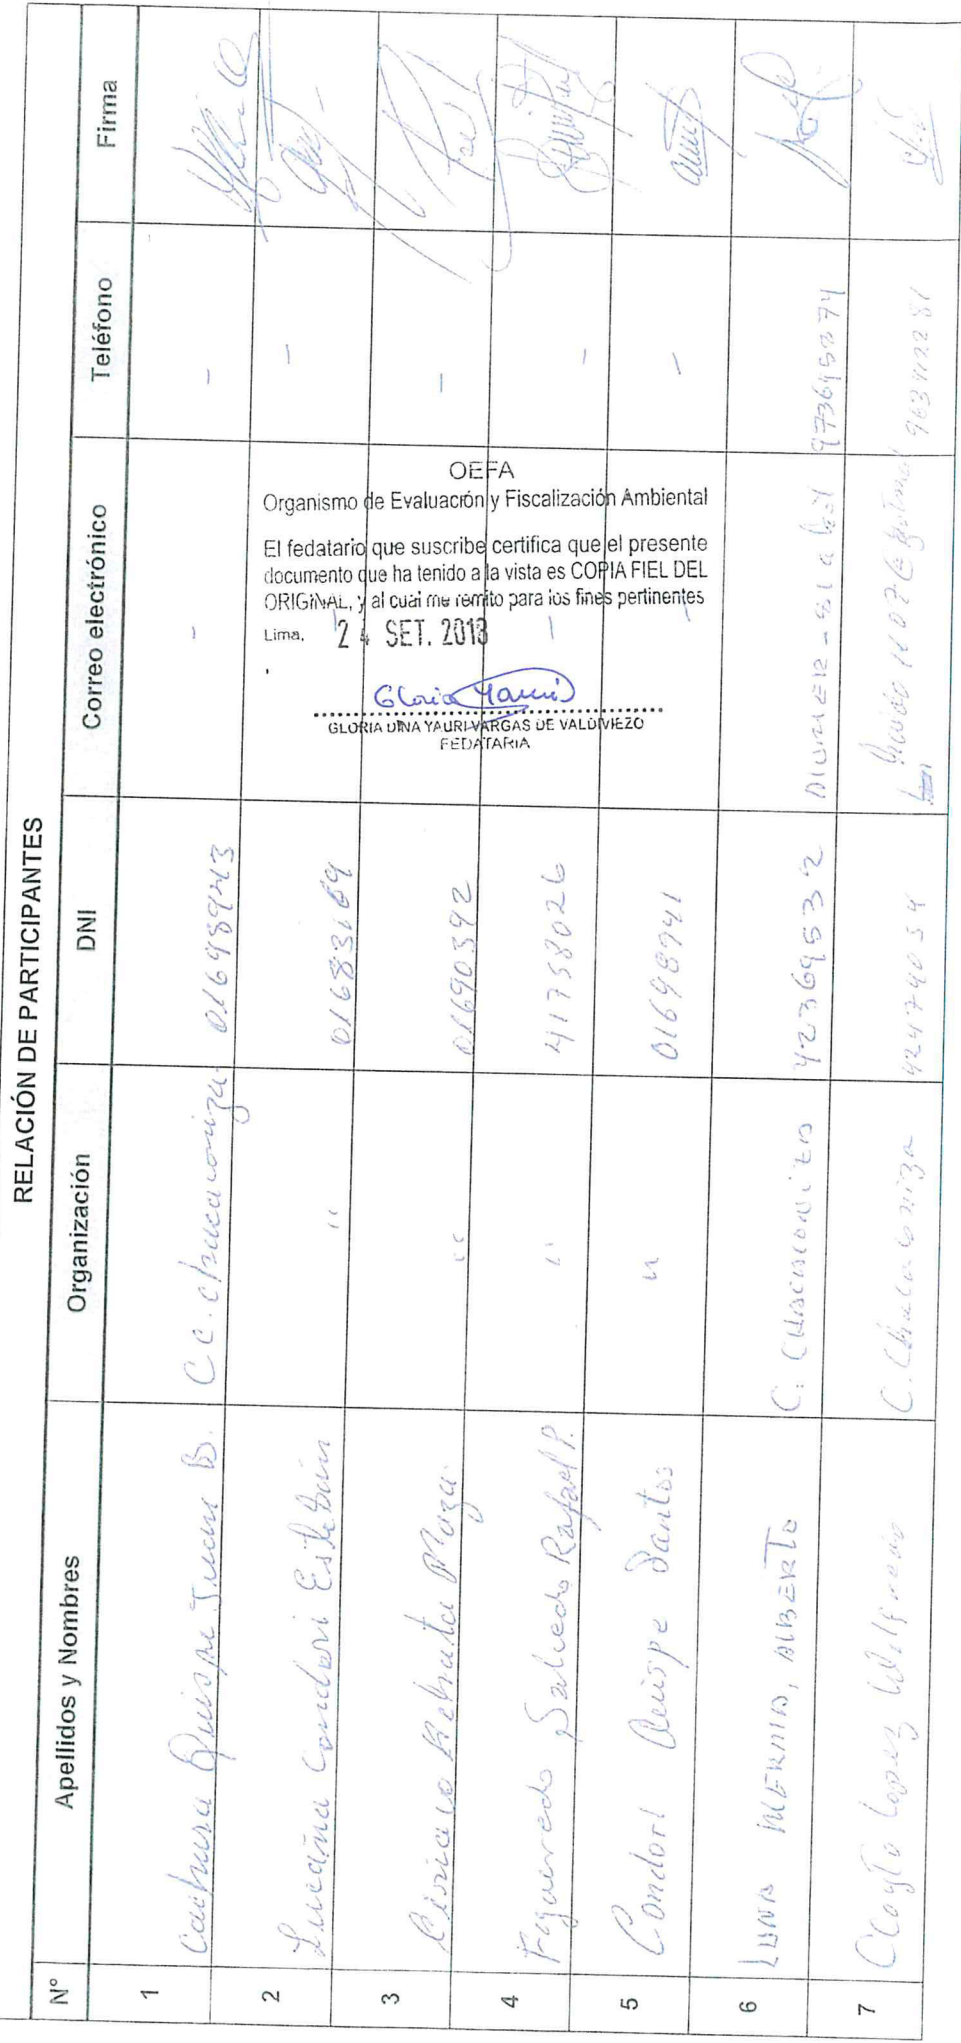 RELACIÓN DE PARTICIPANTES
N° Apellidos y Nombres Organización DNI Correo electrónico Teléfono Firma
1 Quispe Juan B. C.C. Chacaconiza 01698943 - -
2 Condori Esteban " 01683169 - -
3 " 01690392 - -
4 Figueredo Salcedo Rafael P. " 41758026 - -
5 Condori Quispe Santos " 01698941 - -
6 LUNA MERMA, ALBERTO C. CHACACONIZA 42369532 973695274
7 Ccayto Lopez Wilfredo C. Chacaconiza 42474034
OEFA
Organismo de Evaluación y Fiscalización Ambiental
El fedatario que suscribe certifica que el presente
documento que ha tenido a la vista es COPIA FIEL DEL
ORIGINAL, y al cual me remito para los fines pertinentes
Lima, 24 SET. 2018
Gloria Yauri
GLORIA DINA YAURI VARGAS DE VALDIVIEZO
FEDATARIA